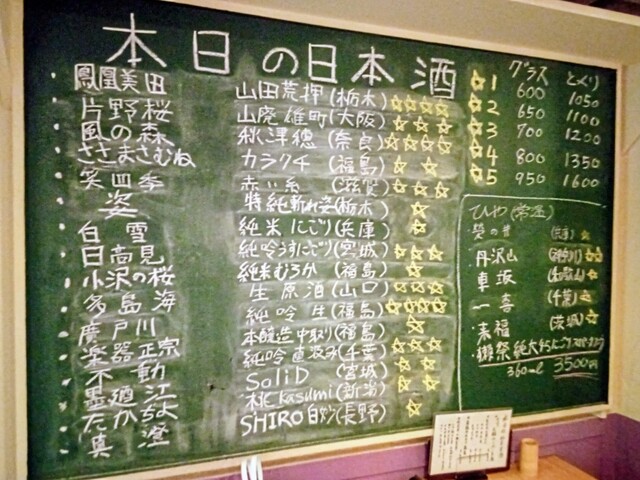 本日の日本酒
鳳凰美田 山田荒押(栃木)☆☆☆☆
片野桜 山廃雄町(大阪)☆☆☆
風の森 秋津穂(奈良)☆☆☆☆
ささまさむね カラクチ(福島)☆☆
笑四季 赤い糸(滋賀)☆☆☆
姿 特純斬れ姿(栃木)☆
白雪 純米にごり(兵庫)☆
日高見 純吟うすにごり(宮城)☆☆☆
小沢の桜 純米むろか(福島)☆
多島海 生原酒(山口)☆☆☆
廣戸川 純吟生(福島)☆☆☆☆
楽器正宗 本醸造中取り(福島)☆
不動 純吟直汲み(千葉)☆☆☆
墨廼江 SoliD(宮城)☆☆
たかちよ 桃Kasumi(新潟)☆☆
真澄 SHIRO白妙(長野)☆
グラス とくり
☆1 600 1050
☆2 650 1100
☆3 700 1200
☆4 800 1350
☆5 950 1600
ひや(常温)
(兵庫)☆
丹沢山 (神奈川)☆☆
車坂 (和歌山)☆
一喜 (千葉)☆
来福 (茨城)☆
獺祭 純大
360ml 3500円